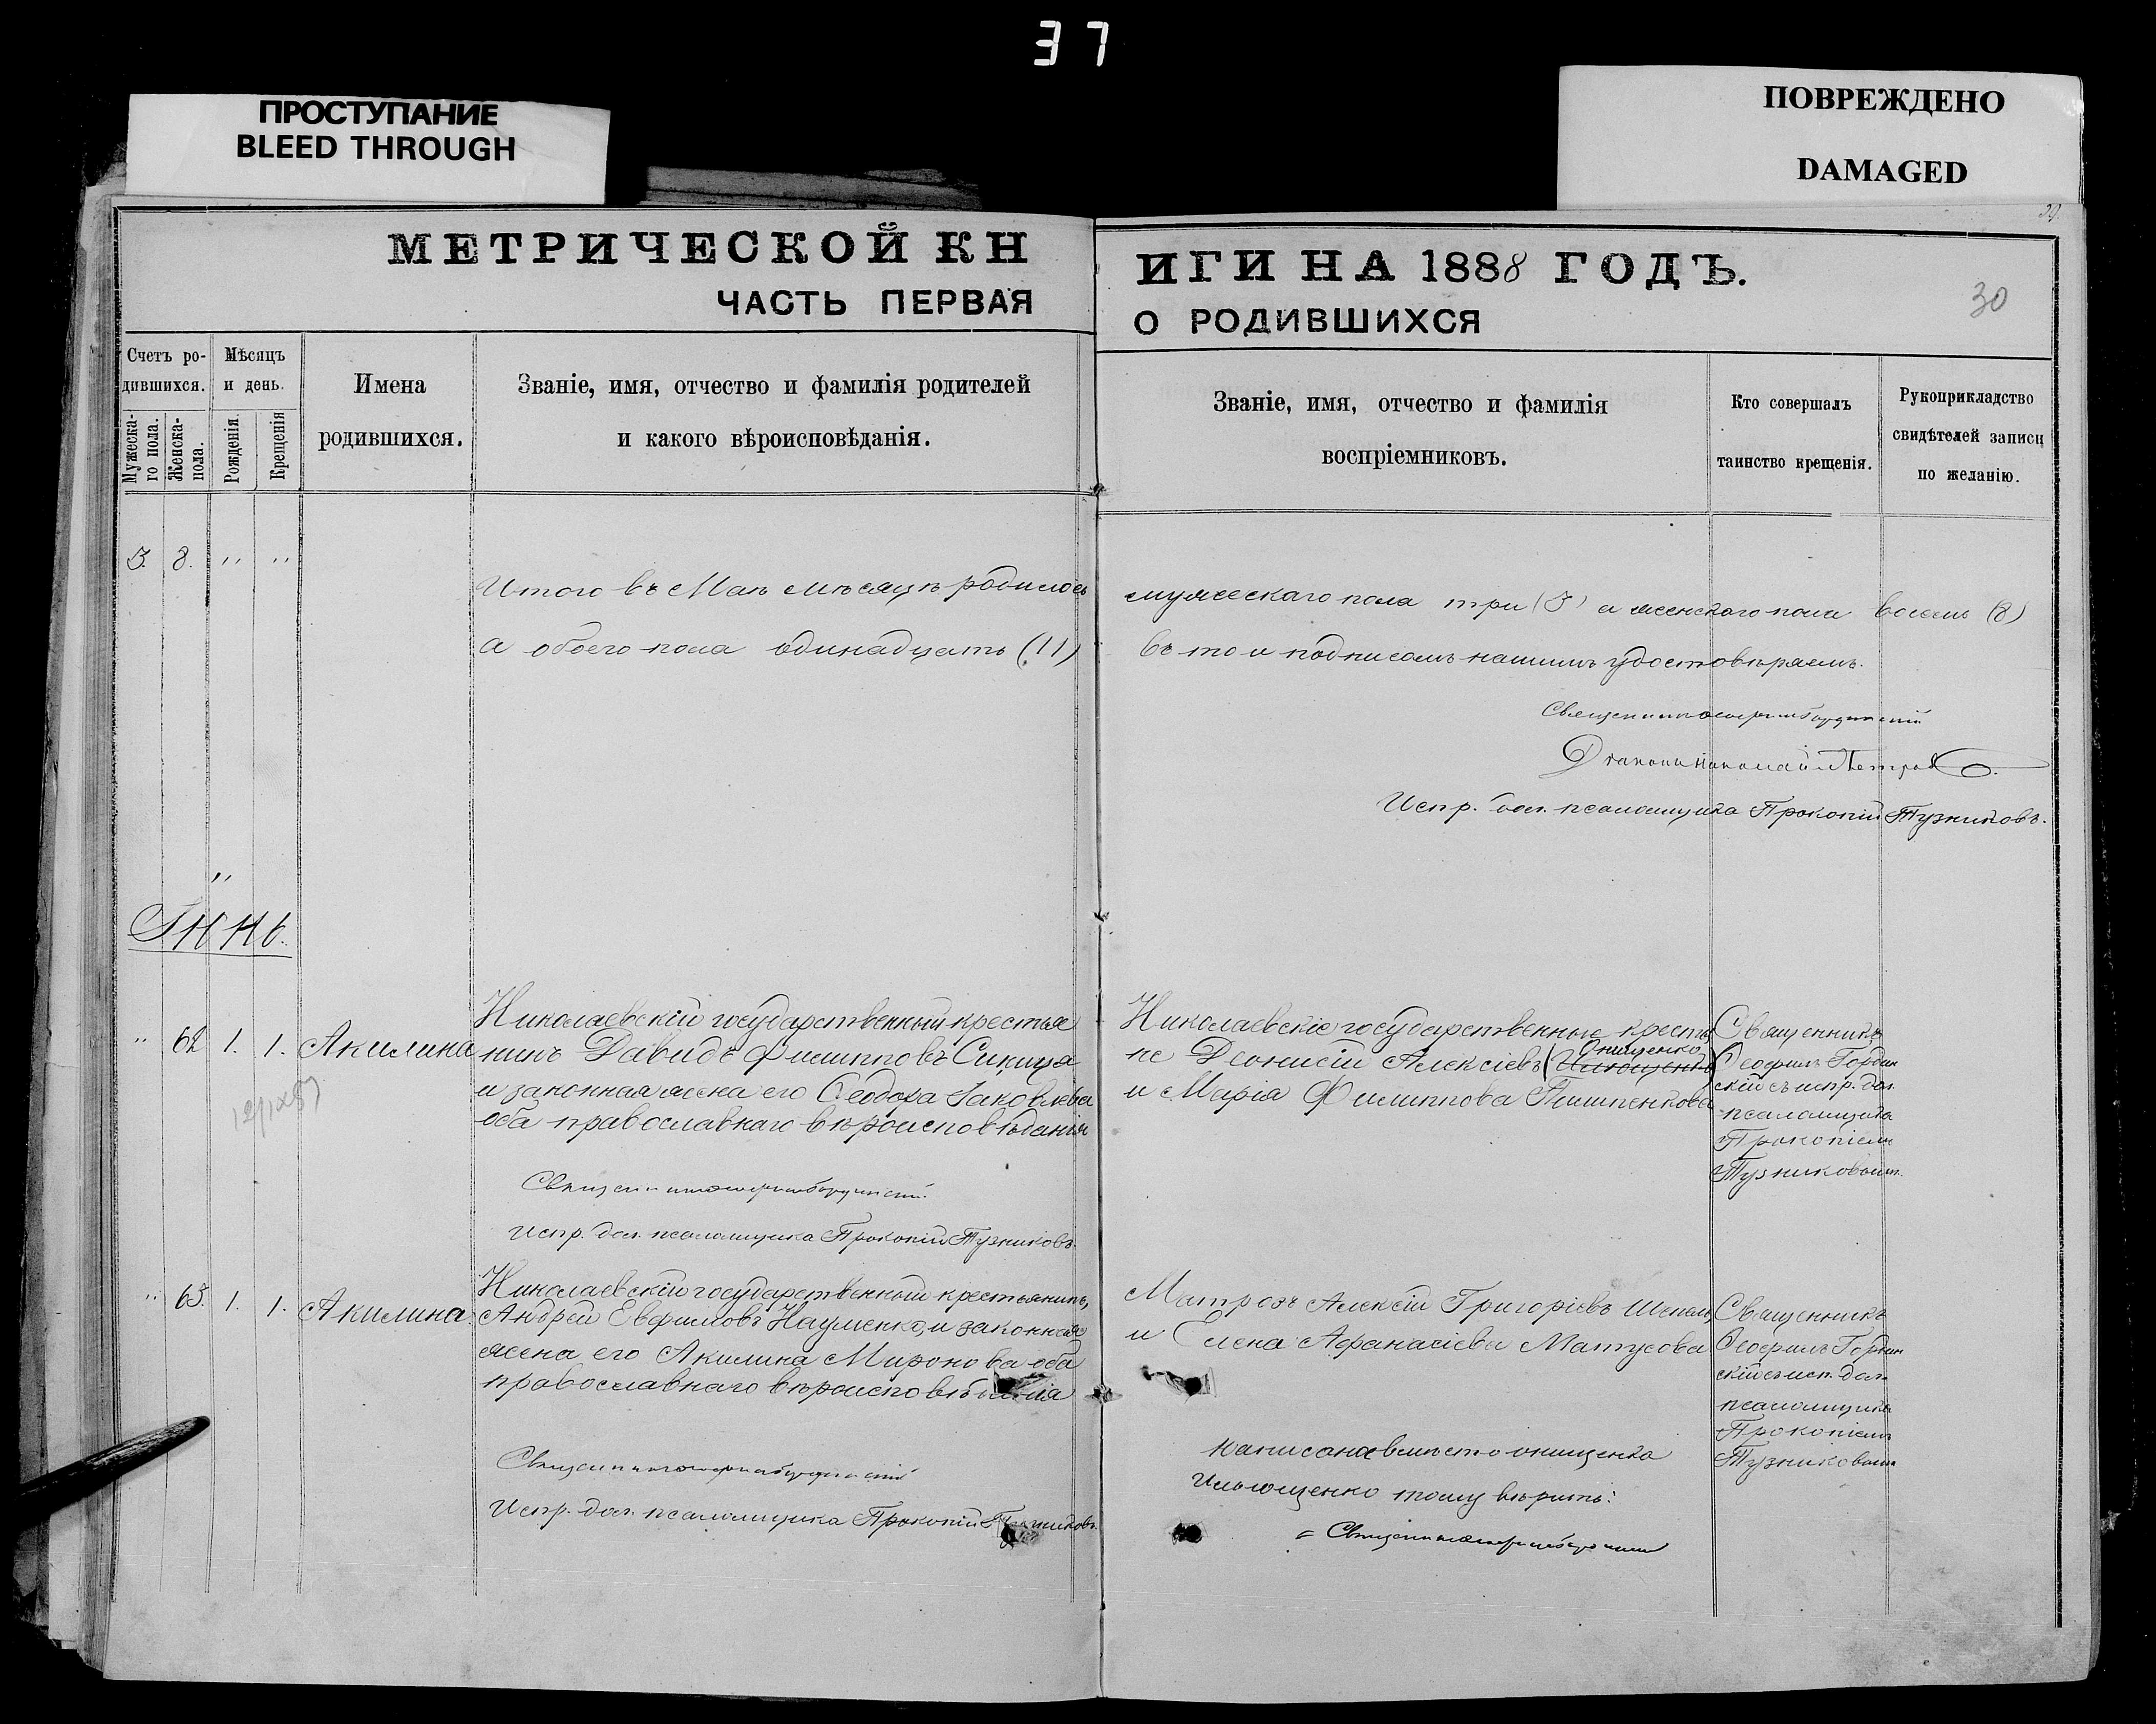 37
ПРОСТУПАНИЕ
BLEED THROUGH
ПОВРЕЖДЕНО
DAMAGED
29.
30
МЕТРИЧЕСКОЙ КН
ИГИ НА 1888 ГОДЪ.
ЧАСТЬ ПЕРВАЯ
О РОДИВШИХСЯ
Счетъ ро-
дившихся.
Мужеска-
го пола.
Женска-
пола.
Мѣсяцъ
и день.
Рожденія
Крещенія
Имена
родившихся.
Званіе, имя, отчество и фамилія родителей
и какого вѣроисповѣданія.
Званіе, имя, отчество и фамилія
воспріемниковъ.
Кто совершалъ
таинство крещенія.
Рукоприкладство
свидѣтелей записи
по желанію.
3. 8. " "
Итого въ Маѣ мѣсяцѣ родилось
мужескаго пола три (3) а женскаго пола восемь (8)
а обоего пола одинадцать (11)
въ то и подписомъ нашимъ удостовѣряемъ.
Священник
Діаконъ Николай Петров
Испр. дол. псаломщика Прокопій Тузниковъ.
Іюнь.
" 62 1. 1. Акилина
Николаевскій государственный крестья
нинъ Давидъ Филипповъ Синица
и законная жена его Ѳеодора Іаковлева
оба православнаго вѣроисповѣданія
Николаевскіе государственные крестья
не Діонисій Алексіевъ Онищенко
и Марія Филиппова
Священникъ
Ѳеофилъ Гордин
скій съ испр. дол.
псаломщика
Прокопіемъ
Тузниковымъ.
Священник
Испр. дол. псаломщика Прокопій Тузниковъ.
" 63. 1. 1. Акилина
Николаевскій государственный крестьянинъ,
Андрей Евфимовъ Науменко, и законная
жена его Акилина Миронова оба
православнаго вѣроисповѣданія
Матрозъ Алексій Григоріевъ
и Елена Афанасіева Матусова
Священникъ
Ѳеофилъ Гордин
скій съ исп. дол.
псаломщика
Прокопіемъ
Тузниковымъ
Священник
Испр. дол. псаломщика Прокопій Тузниковъ.
написана вместо онищенко
Ильющенко тому вѣрить:
= Священник